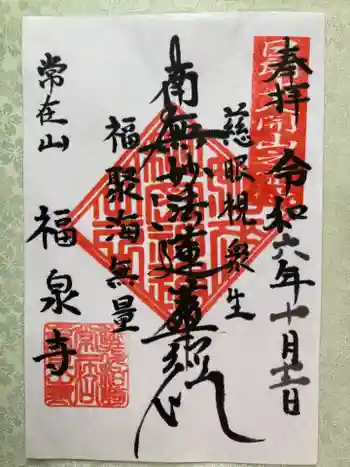 奉拝
令和六年十月十二日
慈眼視衆生
南無妙法蓮華経
福聚海無量
常在山
福泉寺